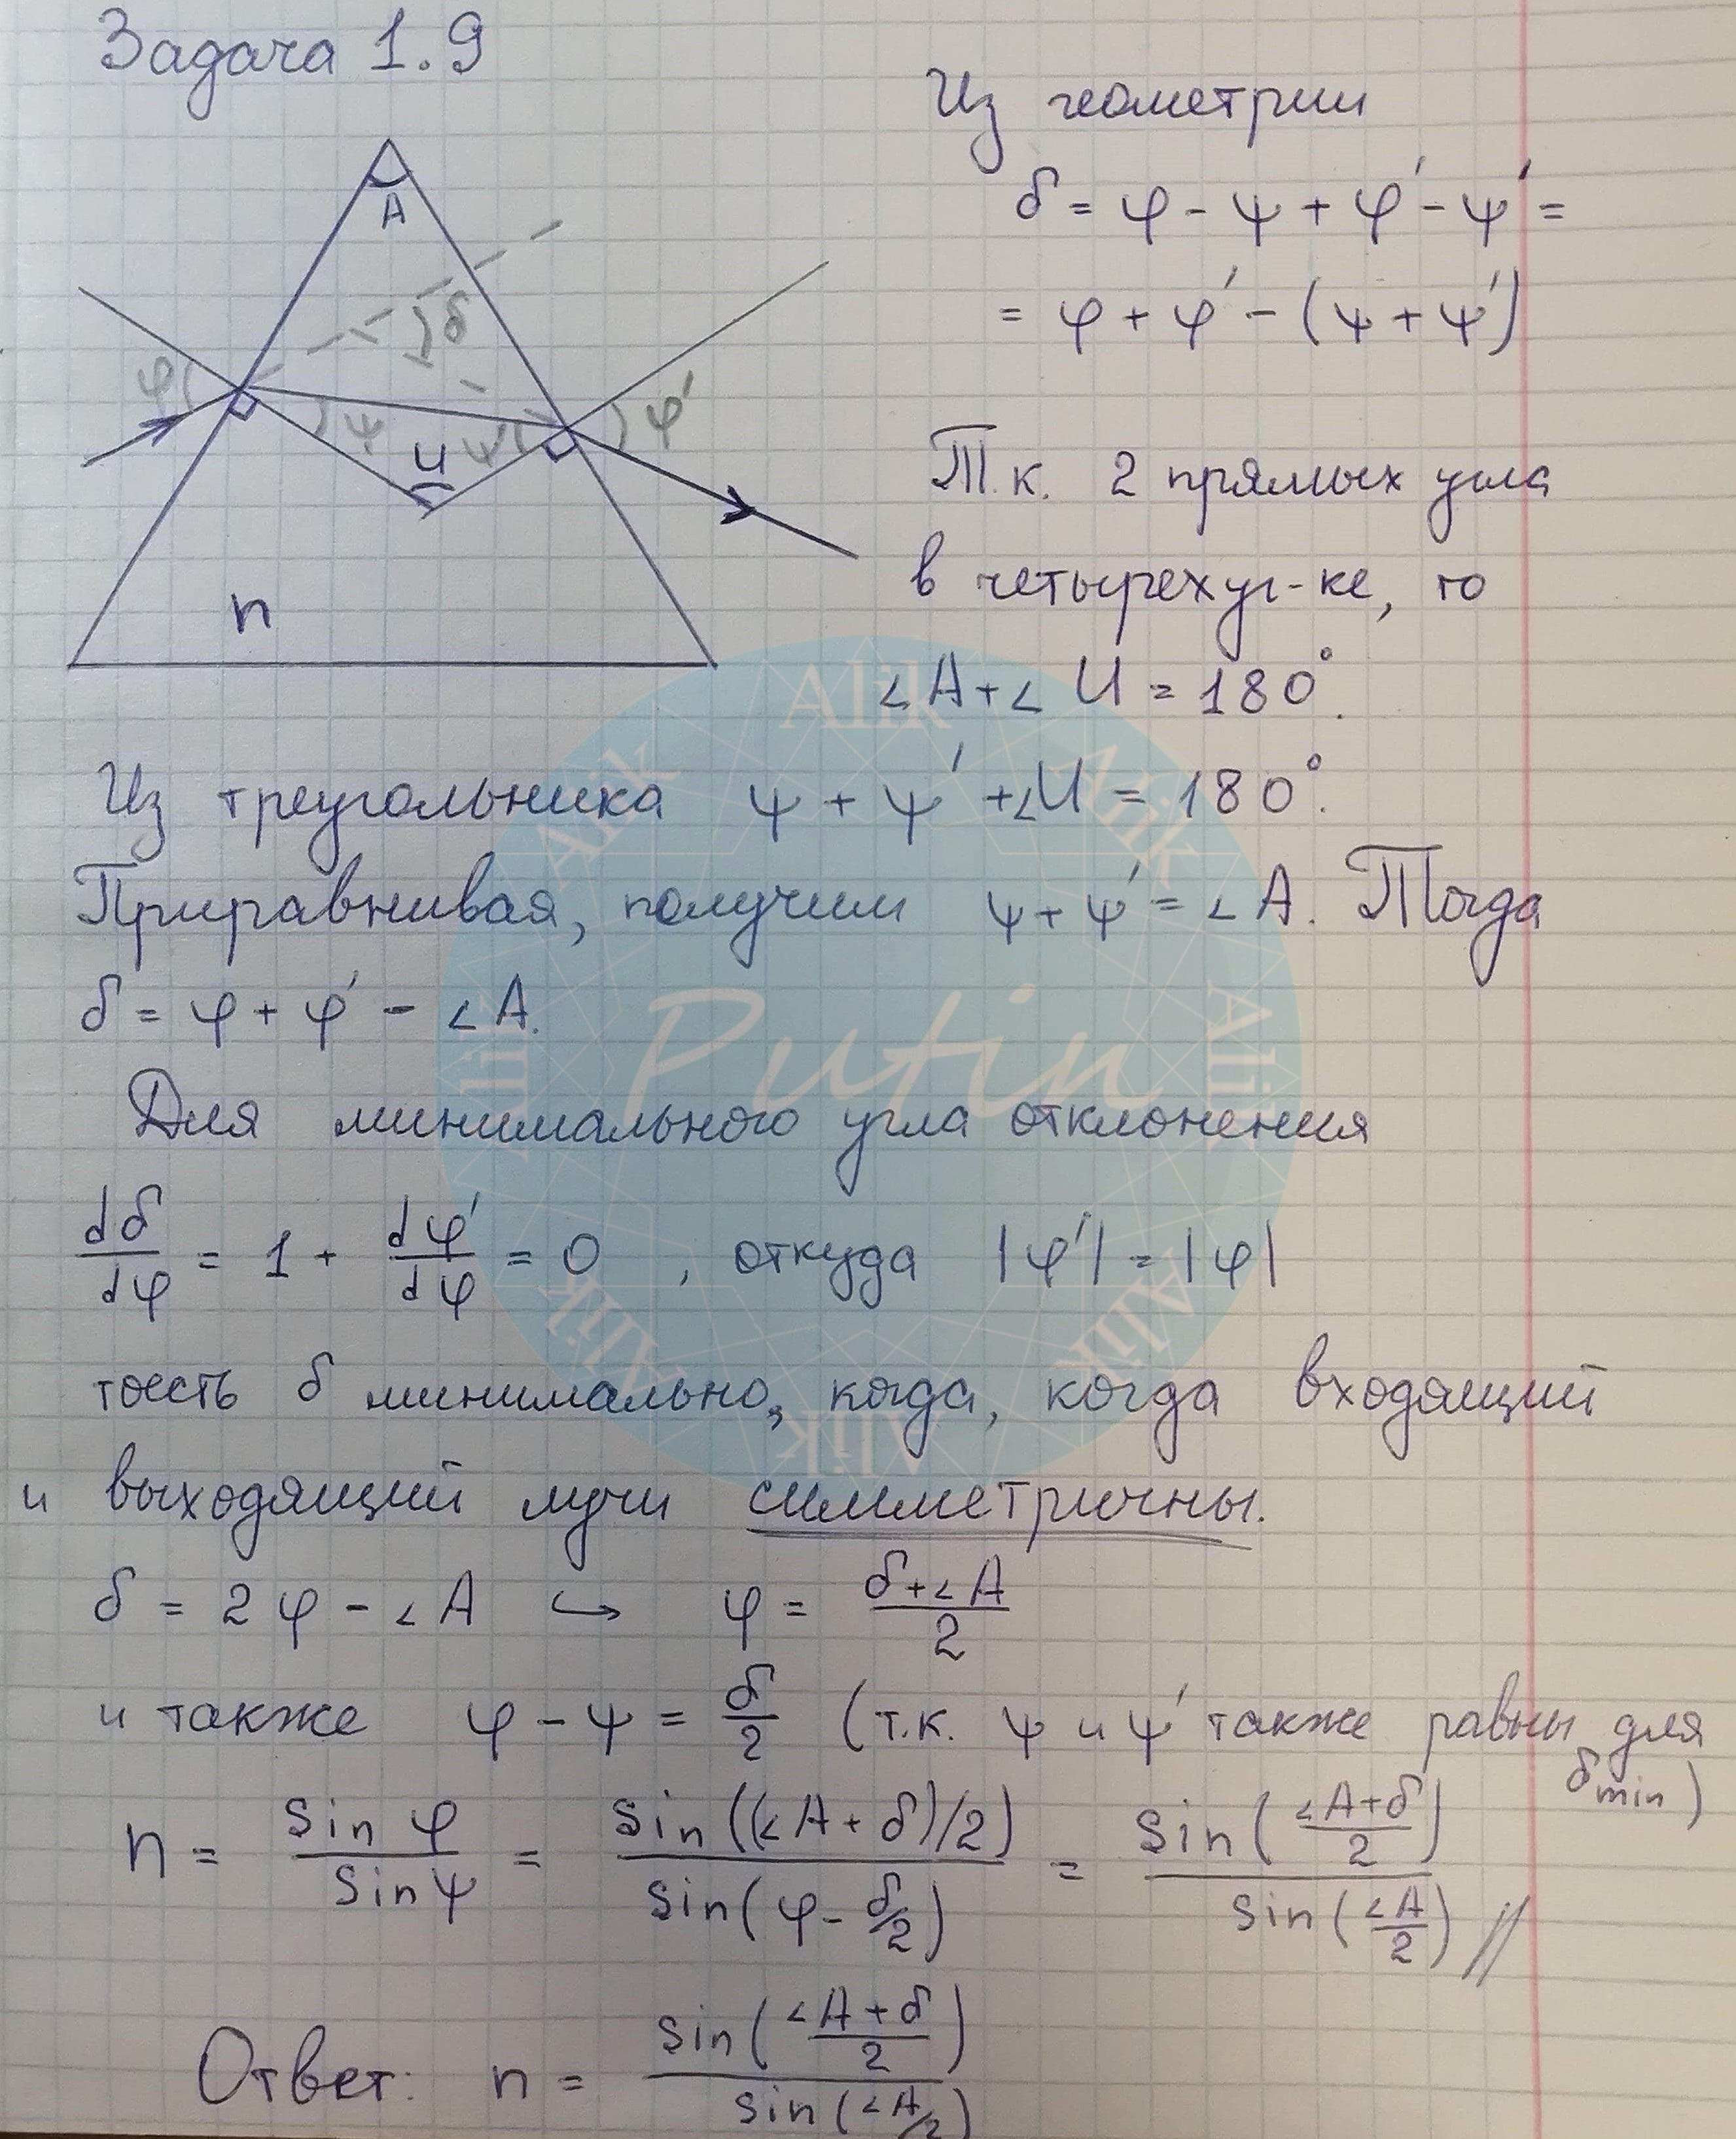 Задача 1.9
A
δ
φ
ψ
ψ'
φ'
U
n
Из геометрии
δ = φ - ψ + φ' - ψ' =
= φ + φ' - (ψ + ψ')
Т.к. 2 прямых угла
в четырехуг-ке, то
∠A + ∠U = 180°.
Из треугольника ψ + ψ' + ∠U = 180°.
Приравнивая, получим ψ + ψ' = ∠A. Тогда
δ = φ + φ' - ∠A.
Для минимального угла отклонения
dδ/dφ = 1 + dφ'/dφ = 0, откуда |φ'| = |φ|
тоесть δ минимально, когда, когда входящий
и выходящий лучи симметричны.
δ = 2φ - ∠A ↪ φ = (δ+∠A)/2
и также φ - ψ = δ/2 (т.к. ψ и ψ' также равны для
δmin)
n = sin φ / sin ψ = sin((∠A + δ)/2) / sin(φ - δ/2) = sin((∠A+δ)/2) / sin(∠A/2) //
Ответ: n = sin((∠A+δ)/2) / sin(∠A/2)
Alik Alik Alik Alik Alik Alik Alik Alik
Putin